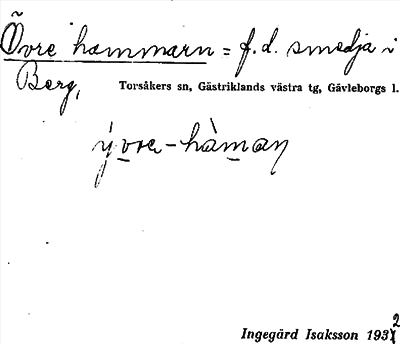 Övre hammarn = f.d. smedja i
Berg, Torsåkers sn, Gästriklands västra tg, Gävleborgs l.
ỳvre-hàmaṇ
Ingegärd Isaksson 1932